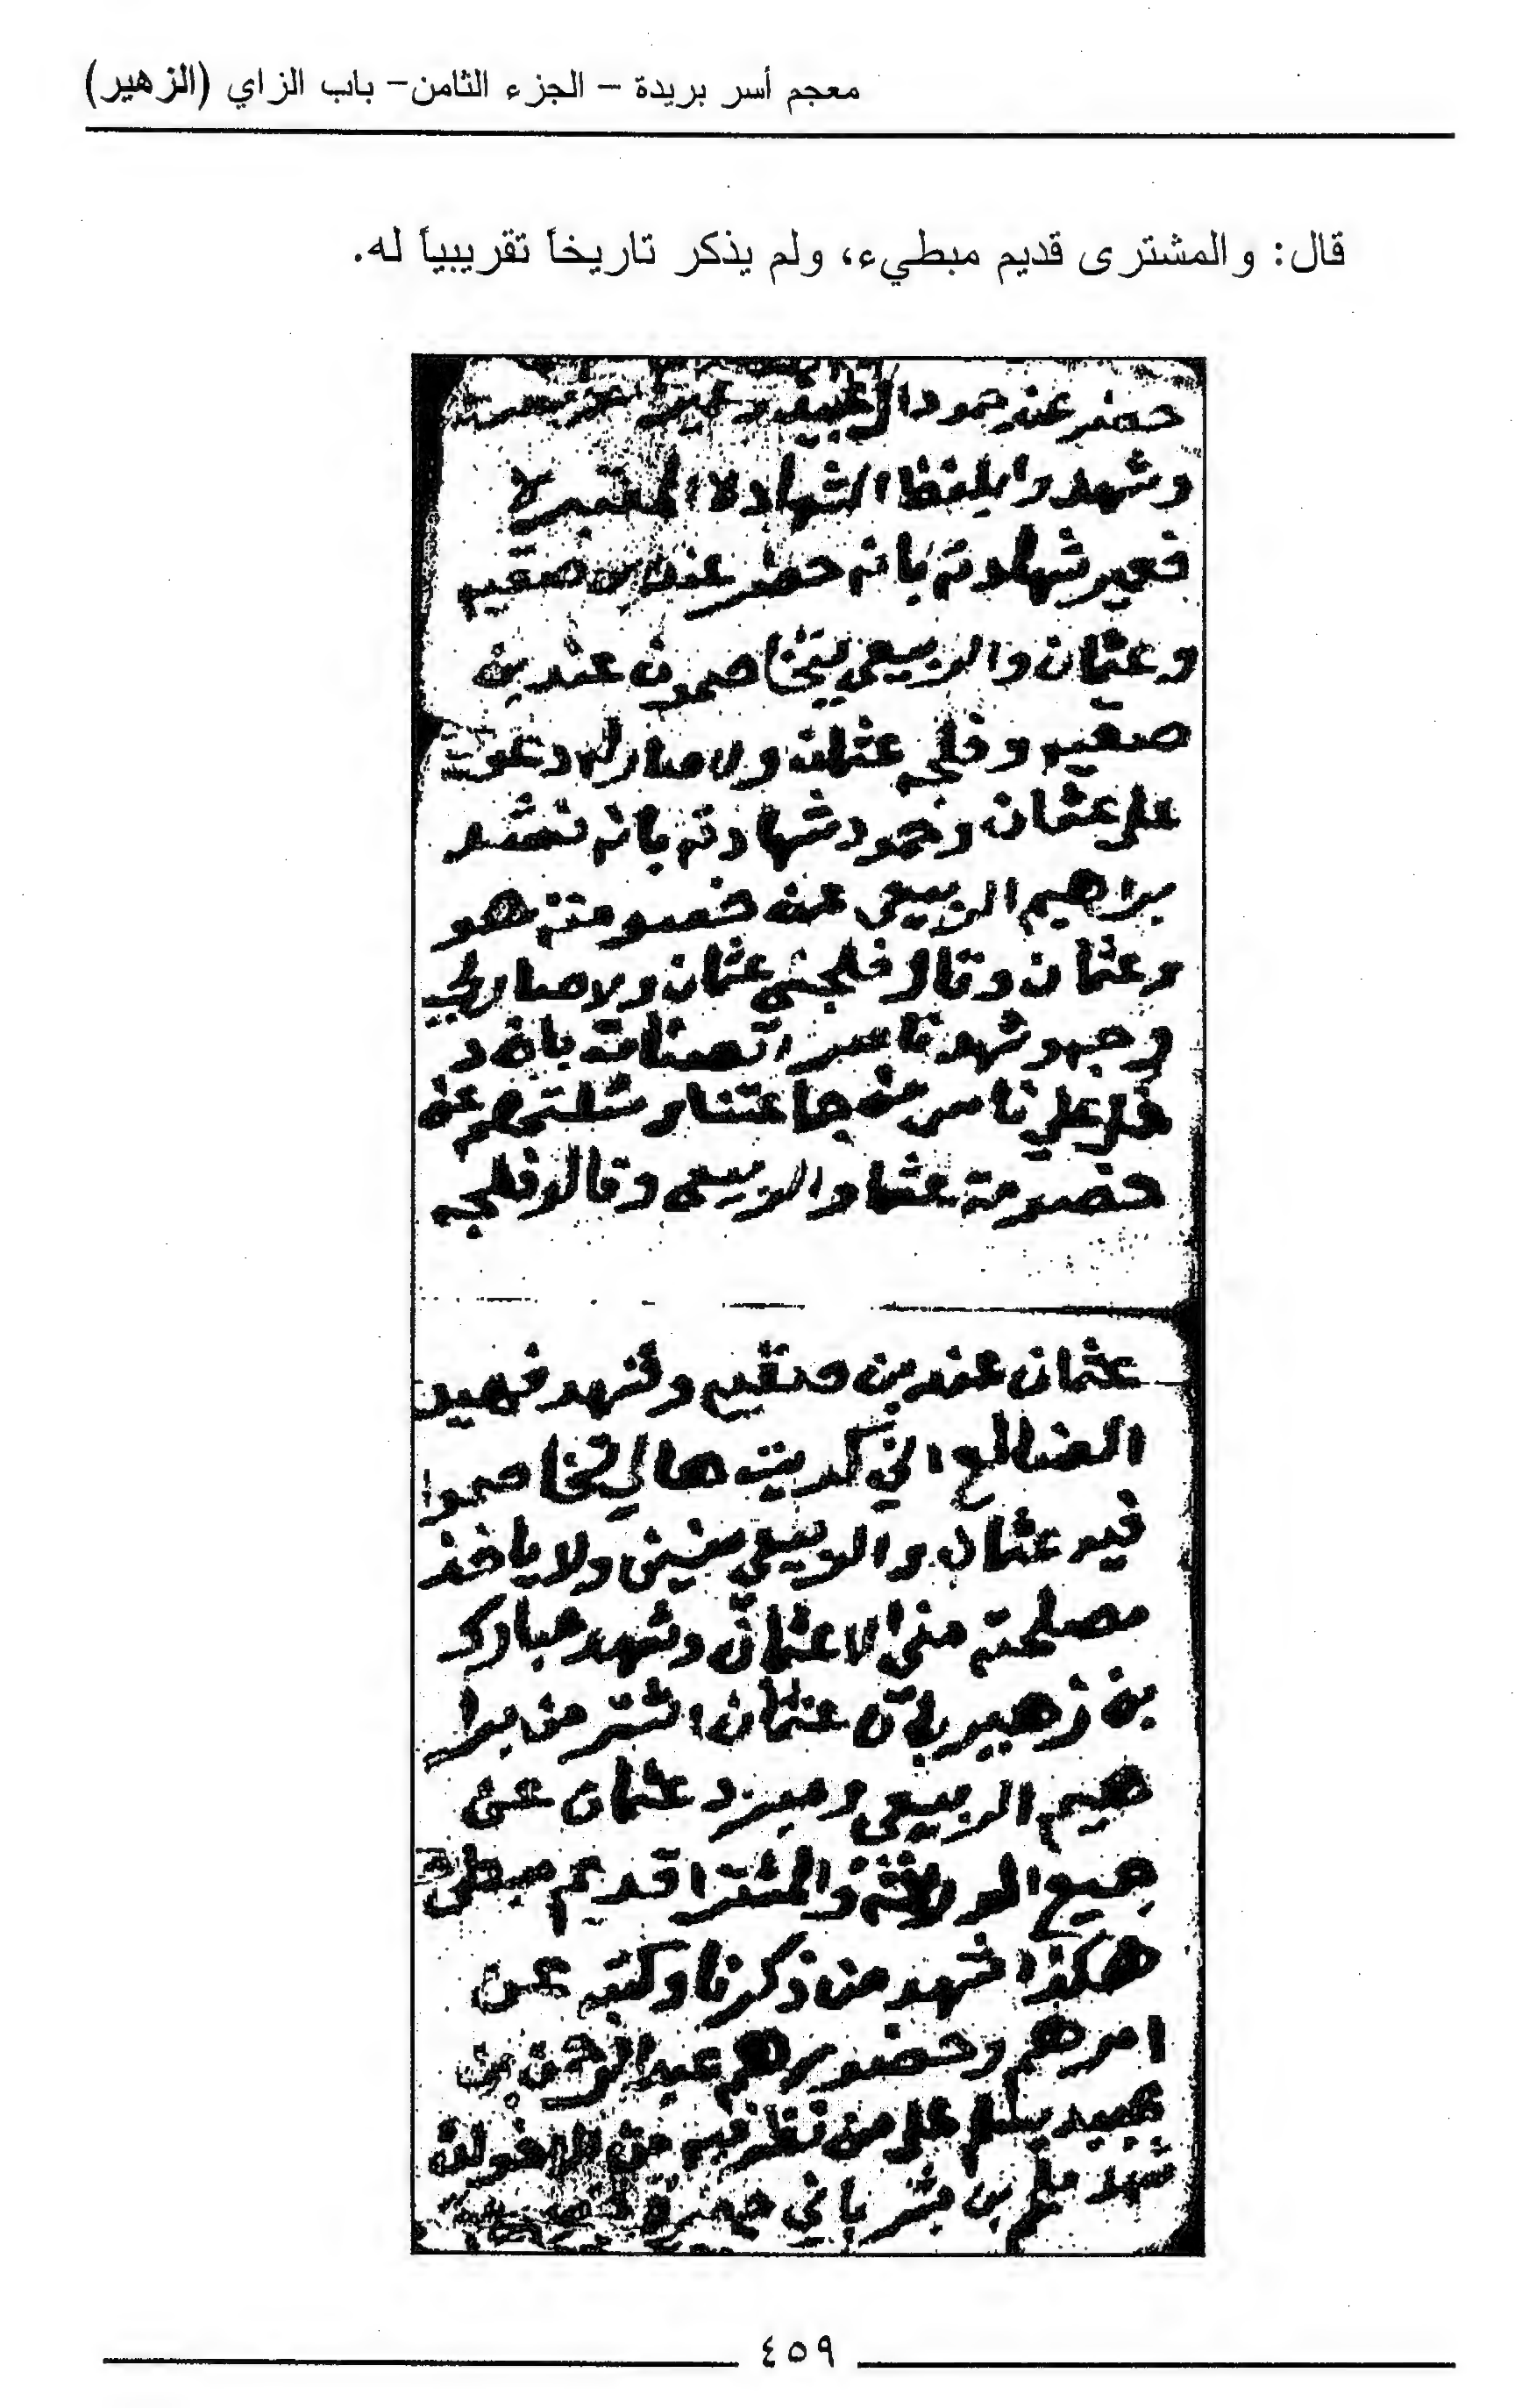 معجم أسر بريدة – الجزء الثامن– باب الزاي (الزهير)
قال: والمشترى قديم مبطيء، ولم يذكر تاريخاً تقريبياً له.
حضر عندي حمود
وشهدوا بلفظ الشهادة المعتبرة
شهادته بانه حظر عند بن صقيه
وعثمان والربيعي يتخاصمون عند بن
صقيه وفلجه عثمان ولا صار له دعوت
على عثمان وحمود شهادته بانه نشد
براهيم الربيعي عن خصومته هو
وعثمان وقال فلجني عثمان ولا صار لي
وجه وشهد ناصر بانه
علي ناس من جماعتنا وسئلتهم عن
خصومة عثما والربيعي وقالو فلجه
عثمان عند بن صقيه وشهد فهيد
الضالع اني كديت هالـ تخاصموا
فيه عثمان والربيعي سنين ولا ياخذ
مصلحته مني الا عثمان وشهد مبارك
بن زهير بان عثمان اشتر من برا
هيم الربيعي وميزد عثمان عن
جميع الورثة والمشترا قديم مبطي
هكذا شهد من ذكرنا وكتبه عن
امرهم وحضورهم عبدالرحمن بن
يسلم على من نظر فيه من الاخوان
شهد بن باني
٤٥٩